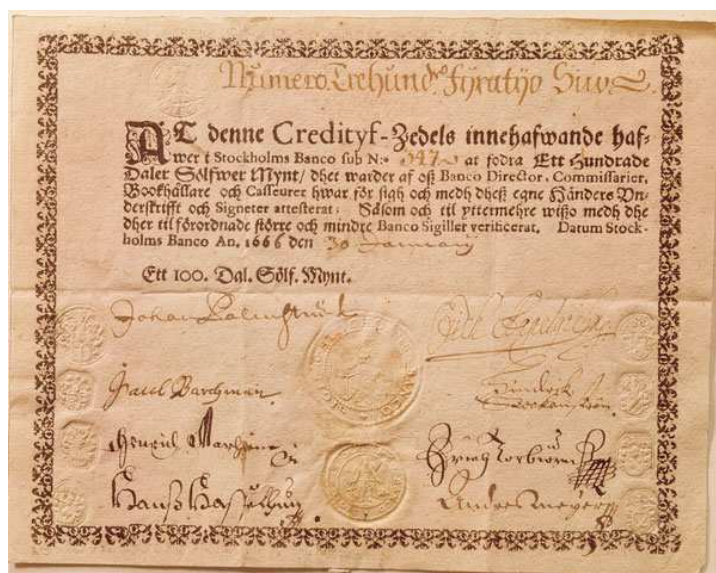 Numero Trehund. Fÿratÿo Siw
AT denne Credityf-Zedels innehafwande haf-
wer i Stockholms Banco sub N:o 347 at fodra Ett Hundrade
Daler Sölfwer Mynt/ dhet warder af oß Banco Director, Commissarier,
Bookhållare och Casseurer hwar för sigh och medh dheß egne Händers Vn-
derskrifft och Signeter attesterat; Såsom och til yttermehre wißo medh dhe
dher til förordnade större och mindre Banco Sigiller verificerat. Datum Stock-
holms Banco An. 1666 den 30 January
Ett 100. Dal. Sölf. Mynt.
Johan Palmstruck
Paul Barchman
Hindrich
Henrich
Hanß
Anders Meyer